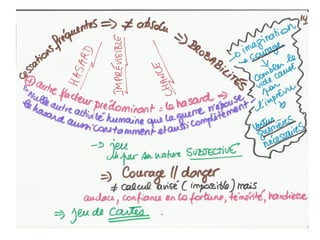 Cessations fréquentes => ≠ absolu => PROBABILITÉS
HASARD
IMPRÉVISIBLE
CHANCE
+ autre facteur prédominant = le hasard =>
"Nulle autre activité humaine que la guerre n'épouse
le hasard aussi constamment et aussi complètement."
-> jeu
-> par sa nature SUBJECTIVE
=> Courage // danger
≠ calcul avisé (impossible) mais
audace, confiance en la fortune, témérité, hardiesse
=> jeu de cartes.
14
-> imagination
-> courage
-> Combler le
vide causé
par
l'imprévu
Vertus
guerrières
nécessaires